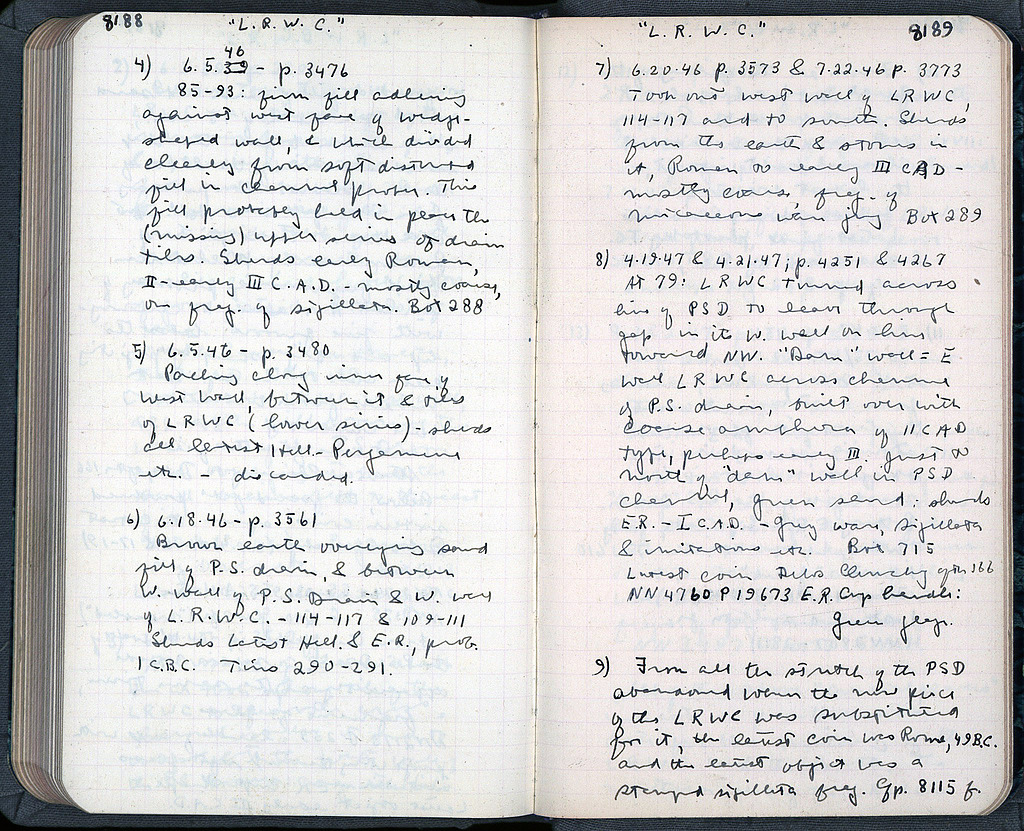 8188
"L.R.W.C."
4) 6.5.46 - p. 3476
85-93: firm fill adhering
against west face of wedge-
shaped wall, & which divided
cleanly from soft disturbed
fill in channel proper. This
fill probably held in place the
(missing) upper series of drain
tiles. Sherds early Roman,
II-early III C.A.D. - mostly coarse,
one frag. of sigillata. Box 288
5) 6.5.46 - p. 3480
Packing along inner face of
west wall, between it & tiles
of LRWC (lower series) - sherds
all latest Hell. - Pergamene
etc. - discarded.
6) 6.18.46 - p. 3561
Brown earth overlying sand
fill of P.S. drain, & between
W. wall of P.S. Drain & W. wall
of L.R.W.C. - 114-117 & 109-111
Sherds Latest Hell. & E.R., prob.
I C.B.C. Tins 290-291.
8189
"L.R.W.C."
7) 6.20.46 p. 3573 & 7.22.46 p. 3773
Took out west wall of LRWC,
114-117 and to south. Sherds
from the earth & stones in
it, Roman to early III C AD -
mostly coarse, frag. of
micaceous ware jug Box 289
8) 4.19.47 & 4.21.47; p. 4251 & 4267
At 79: LRWC turned across
line of PSD to leave through
gap in its W. wall on line
toward NW. "Dam" wall = E
wall LRWC across channel
of P.S. drain, built over with
coarse amphora of II C AD
type, perhaps early III. Just to
north of "dam" wall in PSD
channel, green sand: sherds
E.R. - I C.A.D. - grey ware, sigillata
& imitations etc. Box 715
Latest coin Delos Cleruchy after 166
NN4760 P19673 E.R. Cup handle:
Green glaze.
9) From all the stretch of the PSD
abandoned when the new piece
of the LRWC was substituted
for it, the latest coin was Rome, 49 B.C.
and the latest object was a
stamped sigillata frag. Cf p. 8115 f.